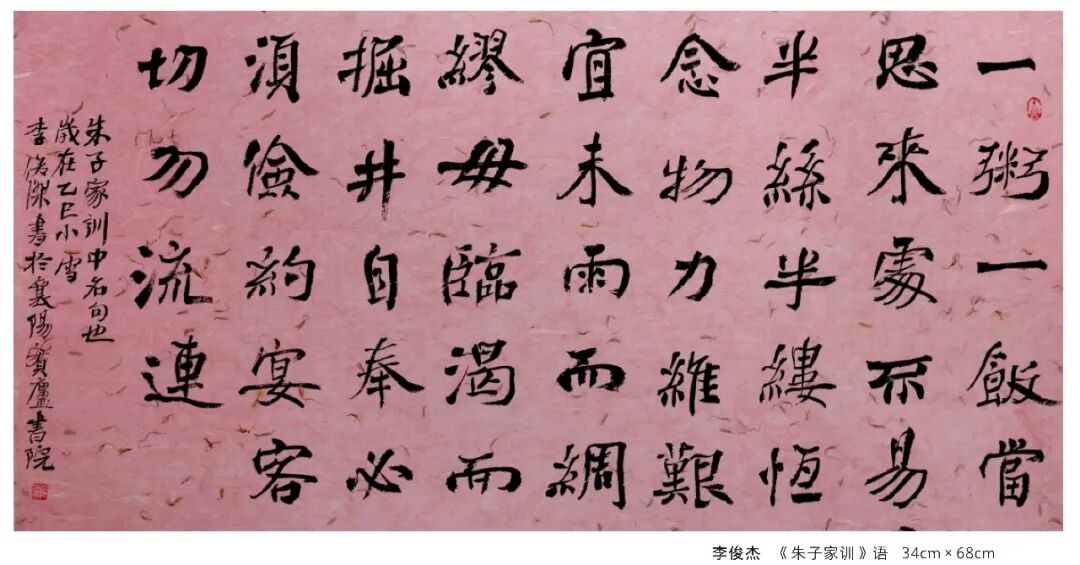 一粥一飯當
思來處不易
半絲半縷恆
念物力維艱
宜未雨而綢
繆毋臨渴而
掘井自奉必
須儉約宴客
切勿流連
朱子家訓中名句也
歲在乙巳小雪
李俊傑書於襄陽廬書院
李俊杰 《朱子家训》语 34cm×68cm